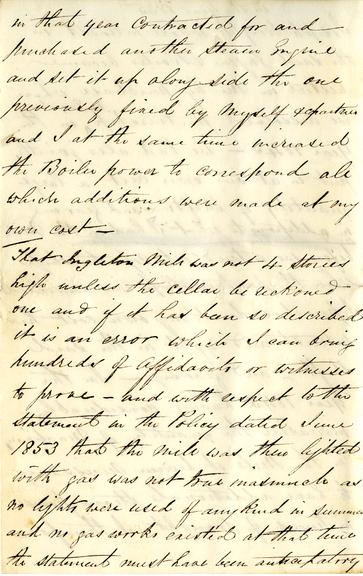 in that year contracted for and
purchased another Steam Engine
and set it up along side the one
previously fixed by Myself & partner
and I at the same time increased
the Boiler power to correspond all
which additions were made at my
own cost —
That Ingleton Mill was not 4 Stories
high unless the cellar be reckoned
one and if it has been so described
it is an error which I can bring
hundreds of Affidavits or witnesses
to prove – and with respect to the
Statement in the Policy dated June
1853 that the Mill was then lighted
with gas was not true inasmuch as
no lights were used of any kind in summer
and no gas works existed at that time
the statement must have been anticipatory